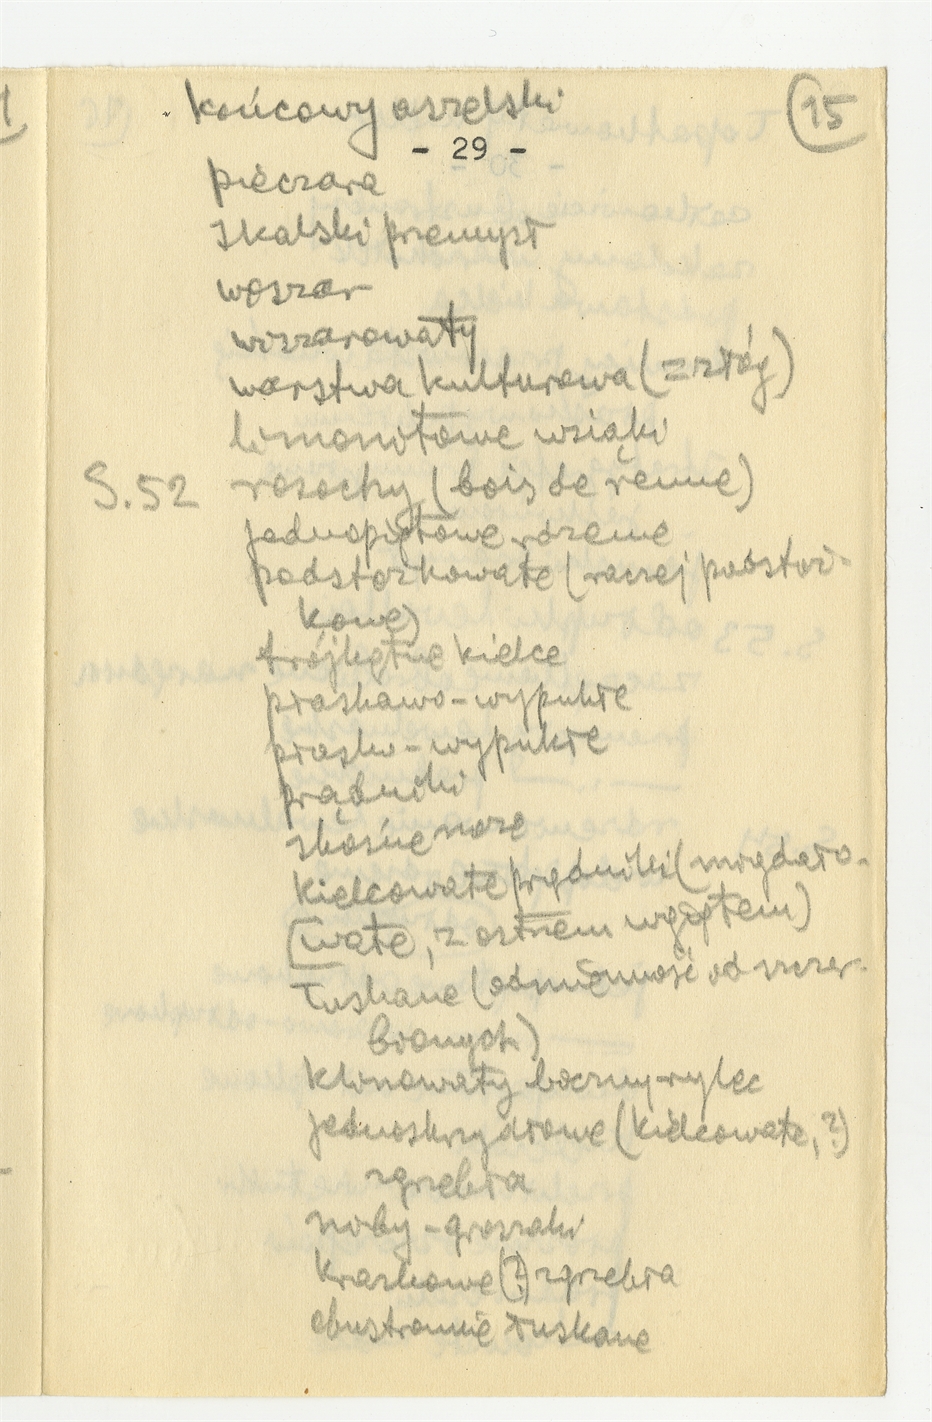 końcowy aszelski
15
- 29 -
pieczara
skalski przemysł
woszar
wiszarowaty
warstwa kulturowa (= złóg)
limonitowe wsiąki
S.52 rosochy (bois de renne)
jednopiętowe rdzenie
podstożkowate (raczej podstoż-
kowe)
trójkątne kielce
płaskawo-wypukłe
płasko-wypukłe
prądniki
skośne noże
kielcowate prądniki (migdało-
wate, z ostrzem wgiętem)
łuskane (odmienność od szczer-
bionych)
klinowaty boczny-rylec
jednoskrzydłowe (kielcowate, ?)
zgrzebła
niby-groszaki
kraskowe (?) zgrzebła
obustronnie łuskane